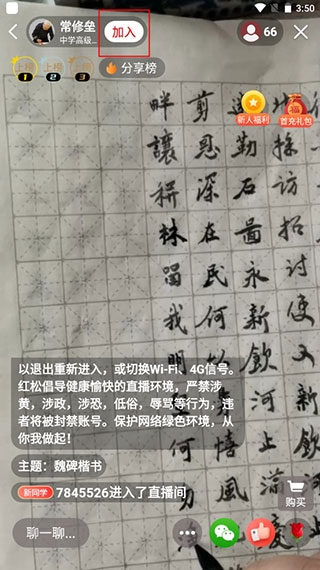 3:50
常修垒
中学高级...
加入
66
上榜 1
上榜 2
上榜 3
分享榜
新人福利
首充礼包
採訪招讨使又新
勤石圖永新飲河止
剪恩深在民何
畔讓耕林我明
以退出重新进入，或切换Wi-Fi、4G信号。
红松倡导健康愉快的直播环境，严禁涉
黄，涉政，涉恐，低俗，辱骂等行为，违
者将被封禁账号。保护网络绿色环境，从
你我做起！
主题：魏碑楷书
新同学 7845526进入了直播间
购买
聊一聊...